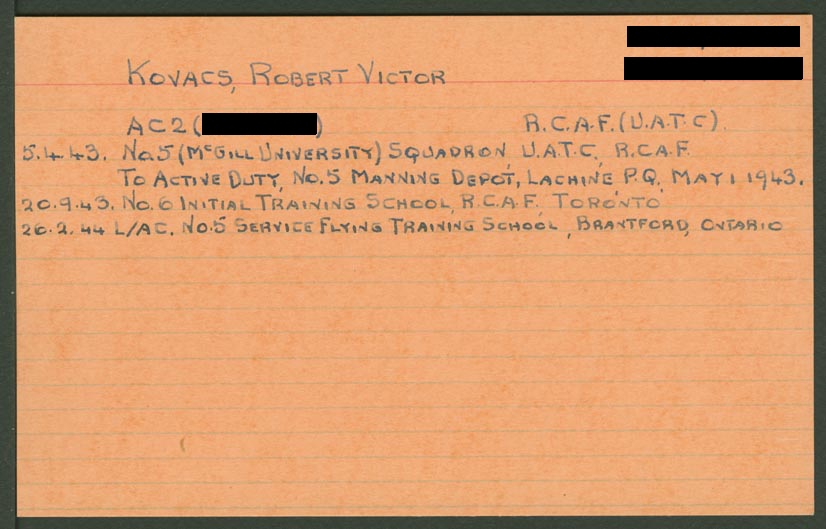 KOVACS, ROBERT VICTOR
AC2 ( ) R.C.A.F. (U.A.T.C).
5.4.43. No.5 (McGILL UNIVERSITY) SQUADRON, U.A.T.C., R.C.A.F.
TO ACTIVE DUTY, No.5 MANNING DEPOT, LACHINE P.Q., MAY 1 1943.
20.9.43. No.6 INITIAL TRAINING SCHOOL, R.C.A.F., TORONTO
26.2.44 L/AC. No.5 SERVICE FLYING TRAINING SCHOOL, BRANTFORD, ONTARIO